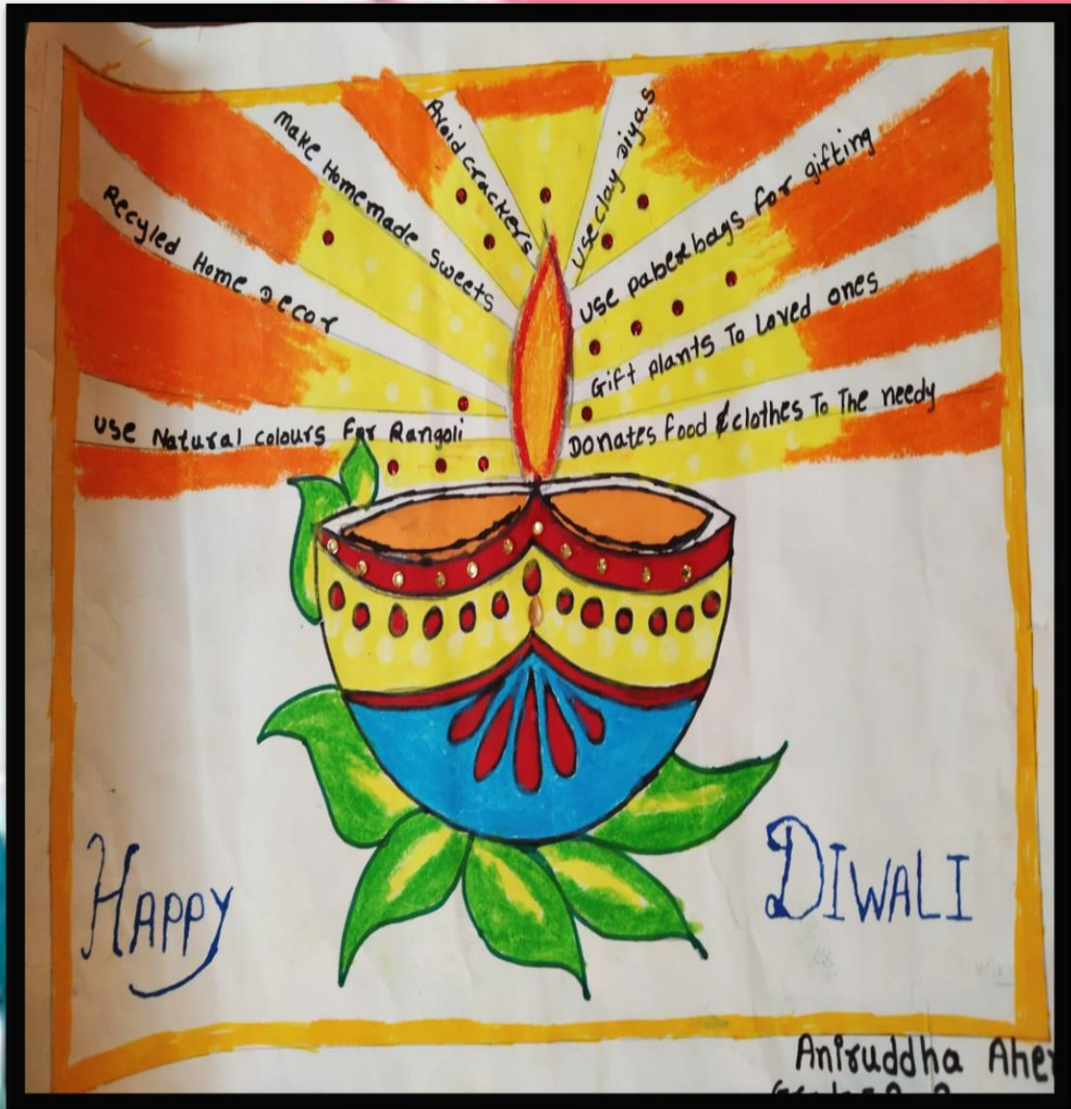 Use Natural colours For Rangoli
Recyled Home Decor
Make Homemade Sweets
Avoid crackers
Use clay Diyas
Use paberbags for gifting
Gift plants To Loved ones
Donates Food & clothes To The needy
HAPPY
DIWALI
Aniruddha Aher